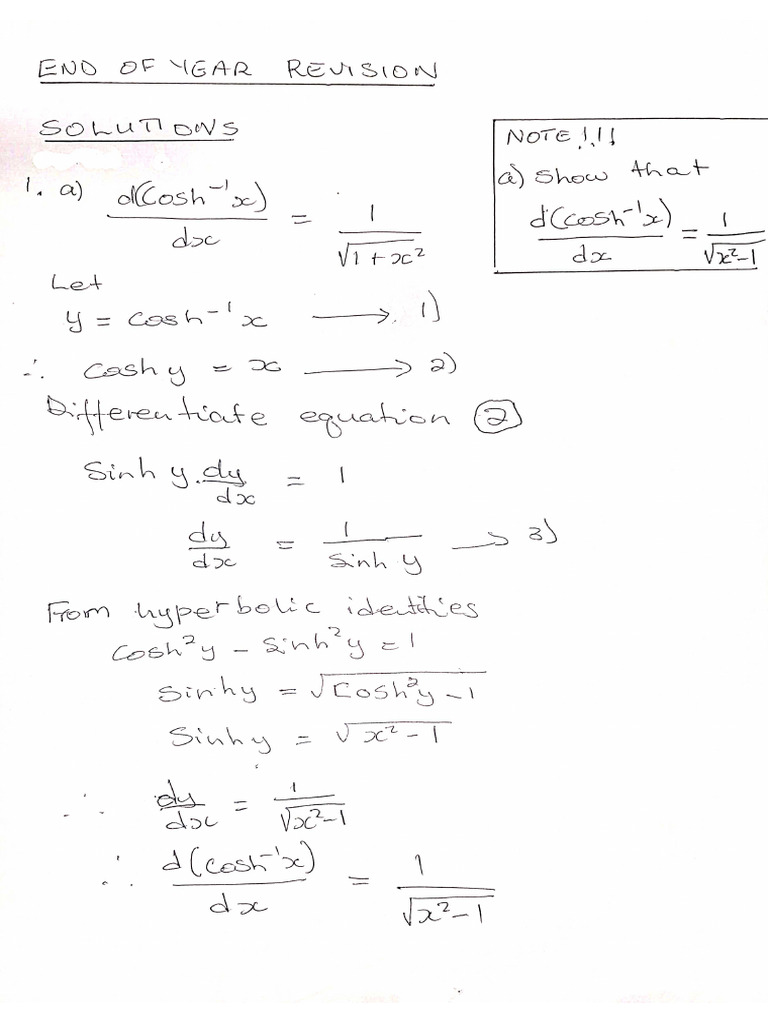 END OF YEAR REVISION
SOLUTIONS
NOTE!!!
a) Show that
d(cosh⁻¹x)/dx = 1/√(x²-1)
1. a) d(Cosh⁻¹x)/dx = 1/√(1+x²)
Let
y = cosh⁻¹x ⟶ 1)
∴ cosh y = x ⟶ 2)
Differentiate equation ②
Sinh y. dy/dx = 1
dy/dx = 1/sinh y ⟶ 3)
From hyperbolic identities
Cosh²y - Sinh²y = 1
Sinhy = √(Cosh²y - 1)
Sinhy = √(x² - 1)
∴ dy/dx = 1/√(x²-1)
∴ d(cosh⁻¹x)/dx = 1/√(x²-1)